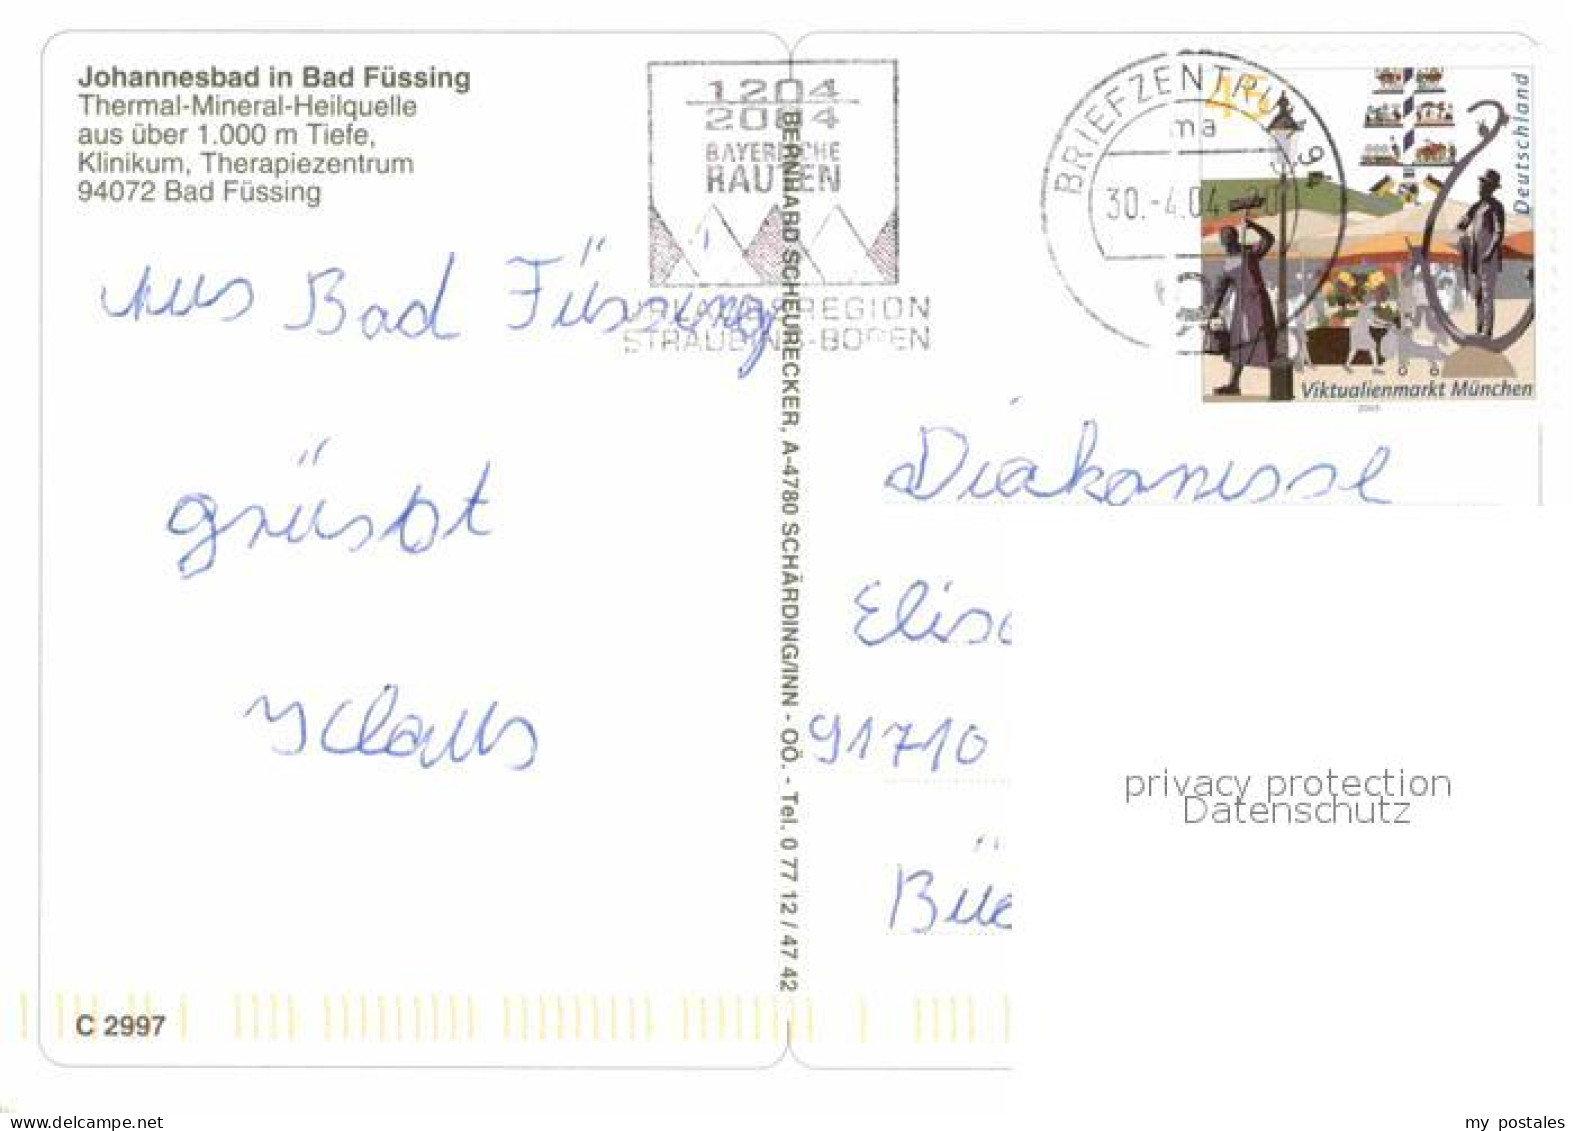 Johannesbad in Bad Füssing
Thermal-Mineral-Heilquelle
aus über 1.000 m Tiefe,
Klinikum, Therapiezentrum
94072 Bad Füssing
1204
2004
BAYERISCHE
RAUTEN
REGION
STRAUBING-BOGEN
BRIEFZENTRUM 94
ma
30.-4.04
Deutschland
Viktualienmarkt München
Aus Bad Füssing
grüsst
Klaus
BERNHARD SCHEURECKER, A-4780 SCHÄRDING/INN - OÖ. - Tel. 0 77 12 / 47 42
Diakonisse
Elisa
91710
privacy protection
Datenschutz
C 2997
www.delcampe.net
my postales